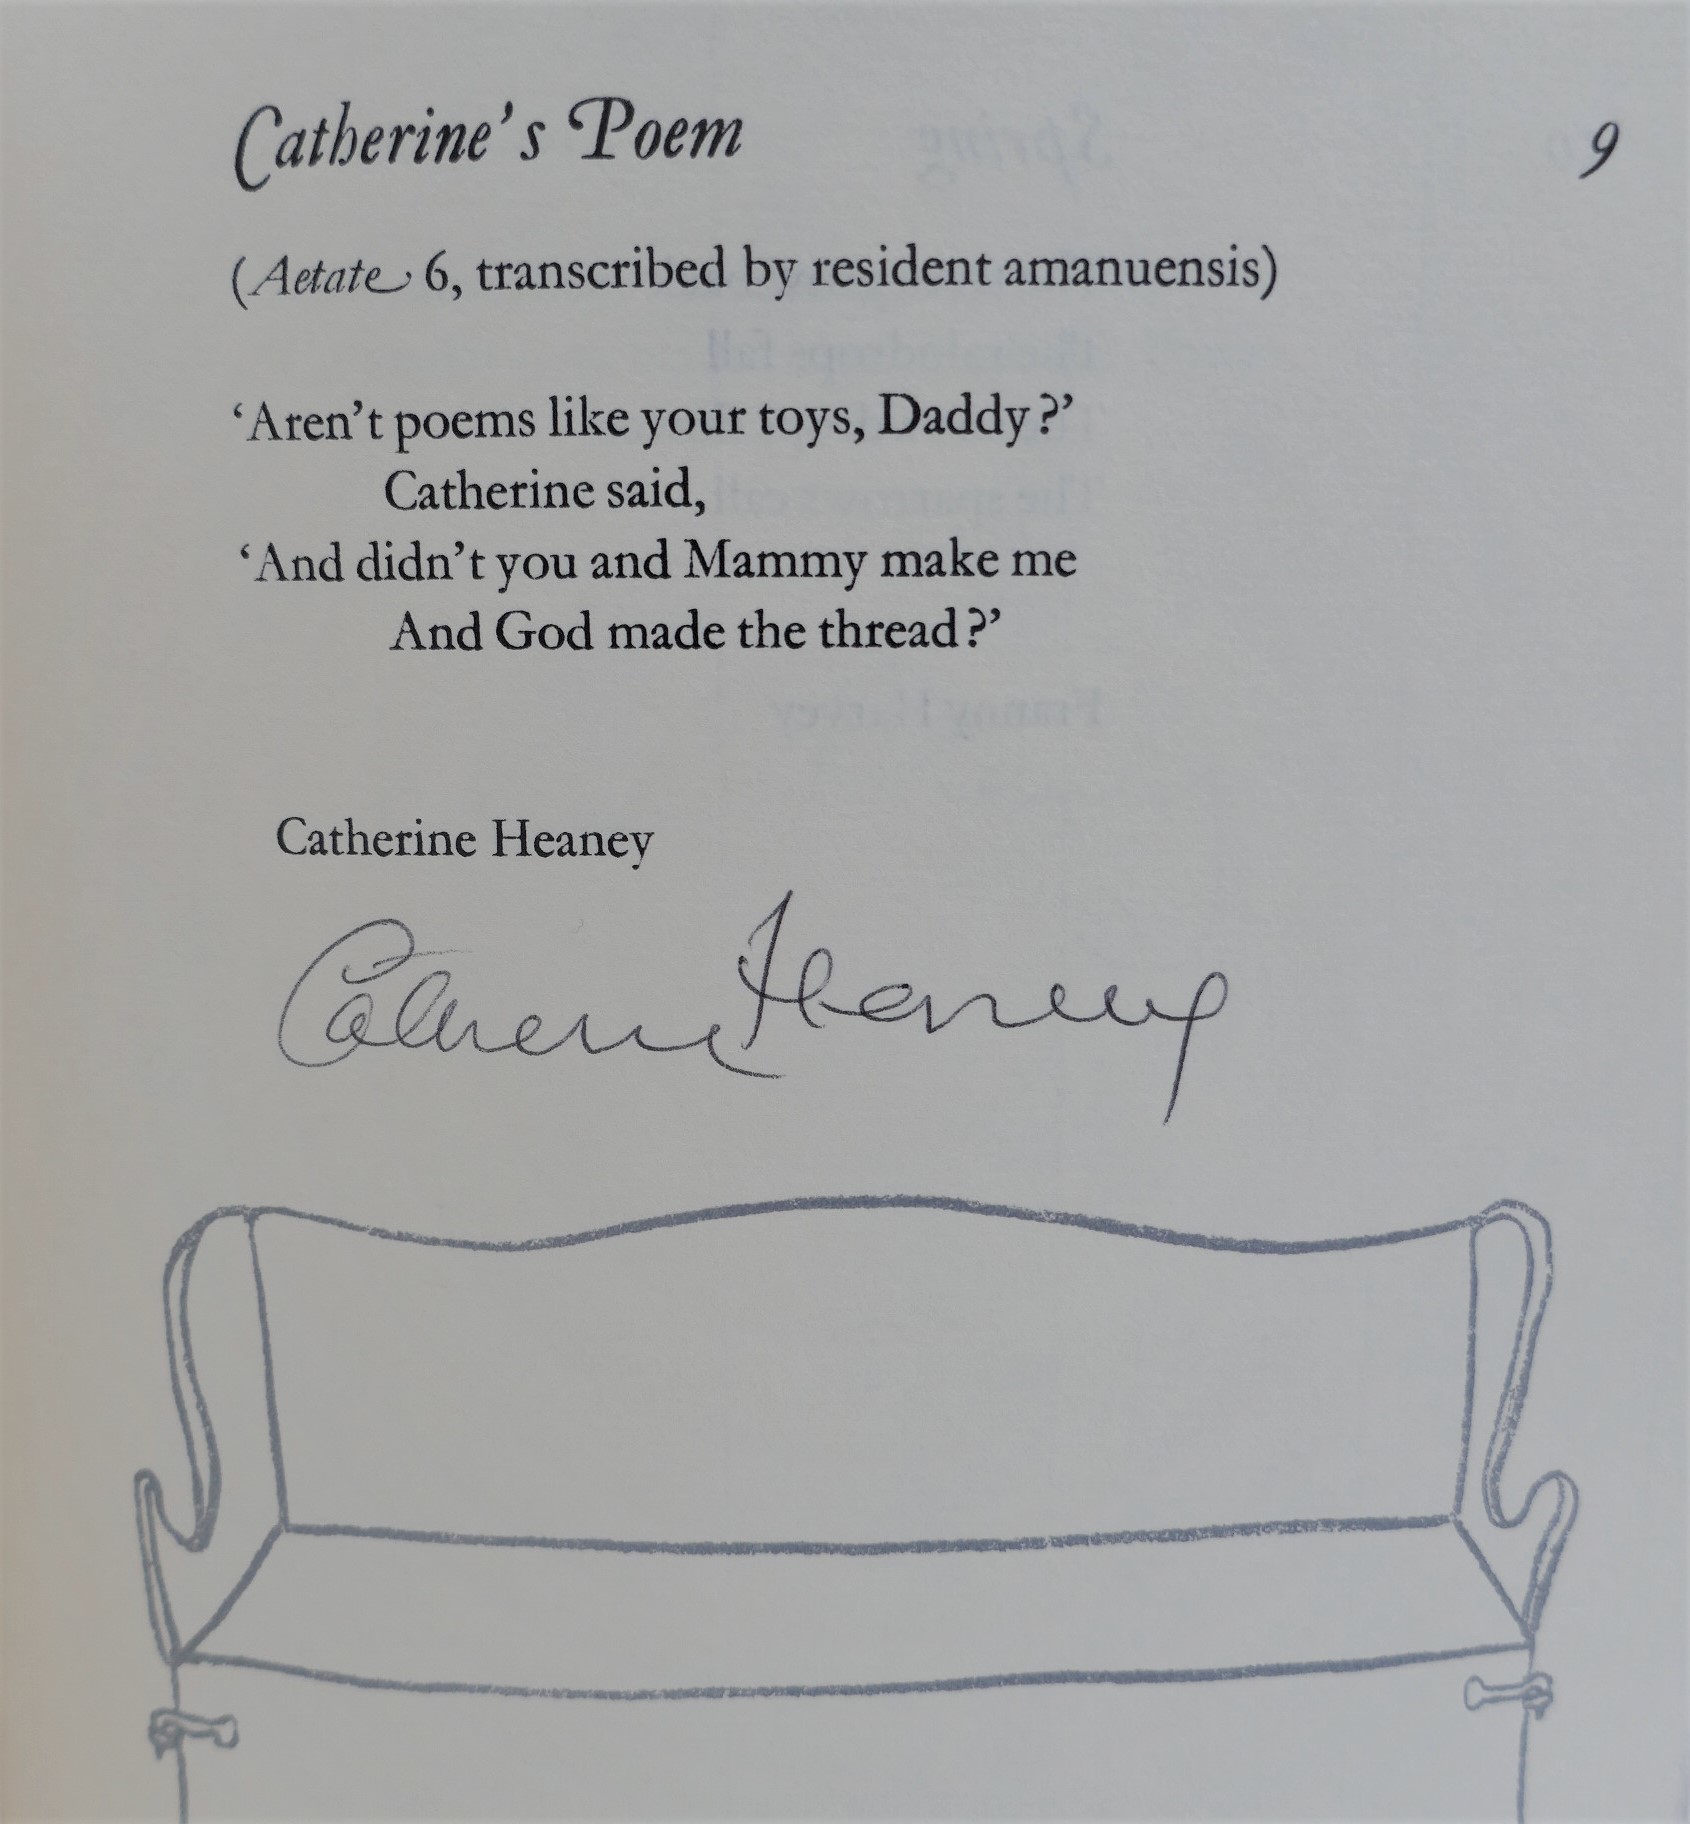 Catherine's Poem
9
(Aetate 6, transcribed by resident amanuensis)
‘Aren’t poems like your toys, Daddy?’
Catherine said,
‘And didn’t you and Mammy make me
And God made the thread?’
Catherine Heaney
Catherine Heaney